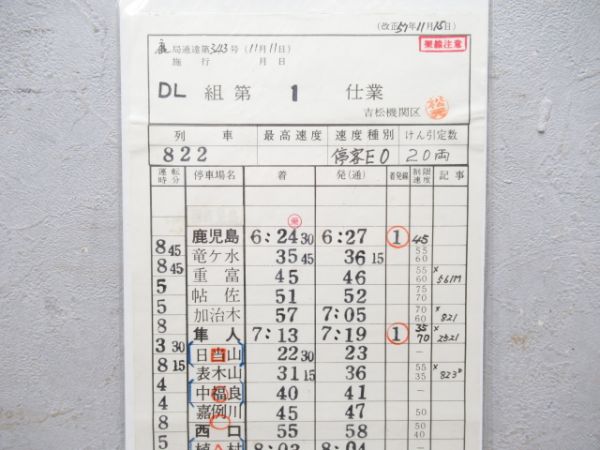 (改正57年11月15日)
局通達第343号 (11月11日)
施行 月 日
架線注意
DL 組 第 1 仕業
吉松機関区 松
列車 最高速度 速度種別 けん引定数
822 停客E0 20両
運転時分 停車場名 着 発(通) 着発線 制限速度 記事
発
鹿児島 6:24 30 6:27 1 45
8 45
竜ケ水 35 45 36 15 55 60
8 45
重富 45 46 55 60 × 561M
5
帖佐 51 52 75 70
5
加治木 57 7:05 70 60 × 821
8
隼人 7:13 7:19 1 35 70 × 2521
3 30
日当山 22 30 23 －
8 15
表木山 31 15 36 55 35 × 823
4
中福良 40 41 －
4
嘉例川 45 47 50
8
西口 55 58 50 40
5
植村 8:03 8:04